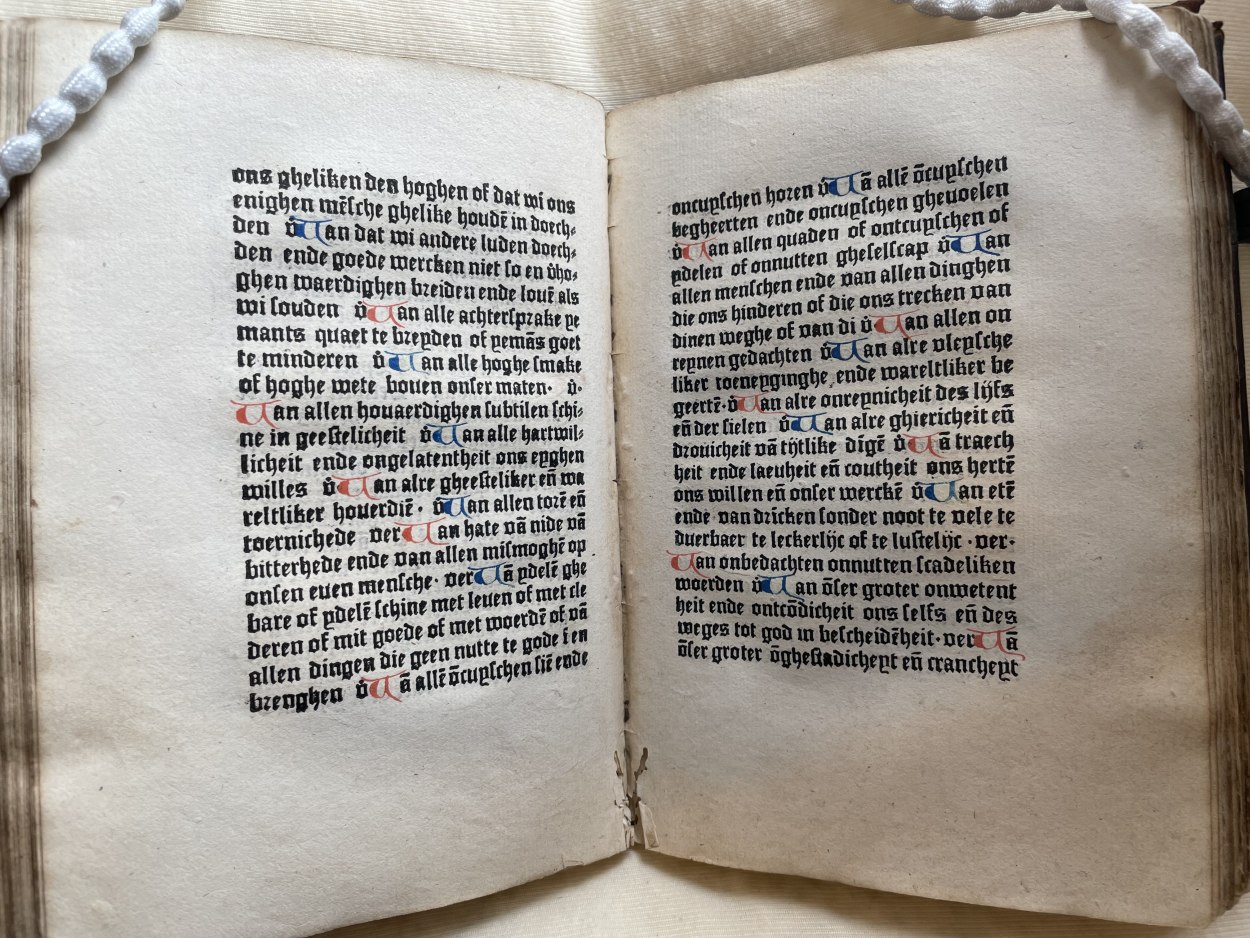 ons gheliken den hoghen of dat wi ons
enighen mēsche ghelike houdē in doech⸗
den v̊ Uan dat wi andere luden doech⸗
den ende goede wercken niet so en v̊ho⸗
ghen waerdighen breiden ende louē als
wi souden v̊ Uan alle achtersprake ye
mants quaet te breyden of yemās goet
te minderen v̊ Uan alle hoghe smake
of hoghe wete bouen onser maten· v̊·
Uan allen houaerdighen subtilen schi⸗
ne in geestelicheit v̊ Uan alle hartwil⸗
licheit ende ongelatentheit ons eyghen
willes v̊ Uan alre gheesteliker eñ wa
reltliker houerdiē · v̊ Uan allen torē eñ
toernichede ver Uan hate vā nide vā
bitterhede ende van allen mismoghē op
onsen euen mensche· ver Uā ydelē ghe
bare of ydelē schine met leuen of met cle
deren of mit goede of met woerdē of vā
allen dingen die geen nutte te gode ī en
brenghen v̊ Uā allē ōcuyschen siē ende
oncuyschen horen v̊ Uā allē ōcuyschen
begheerten ende oncuyschen gheuoelen
v̊ Uan allen quaden of ontcuyschen of
ydelen of onnutten gheselscap v̊ Uan
allen menschen ende van allen dinghen
die ons hinderen of die ons trecken van
dinen weghe of van di v̊ Uan allen on
reynen gedachten v̊ Uan alre vleysche
liker toeneyginghe ende wareltliker be
geertē· v̊ Uan alre onreynicheit des lijfs
eñ der sielen v̊ Uan alre ghiericheit eñ
drouicheit vā tijtlike dīgē v̊ Uā traech
heit ende laeuheit eñ coutheit ons hertē
ons willen eñ onser werckē v̊ Uan etē
ende van drīcken sonder noot te vele te
duerbaer te leckerlijc of te lustelijc · ver·
Uan onbedachten onnutten scadeliken
woerden v̊ Uan ōser groter onwetent
heit ende ontcōdicheit ons selfs eñ des
weges tot god in bescheidēheit· ver Uā
ōser groter ōghestadicheyt eñ crancheyt